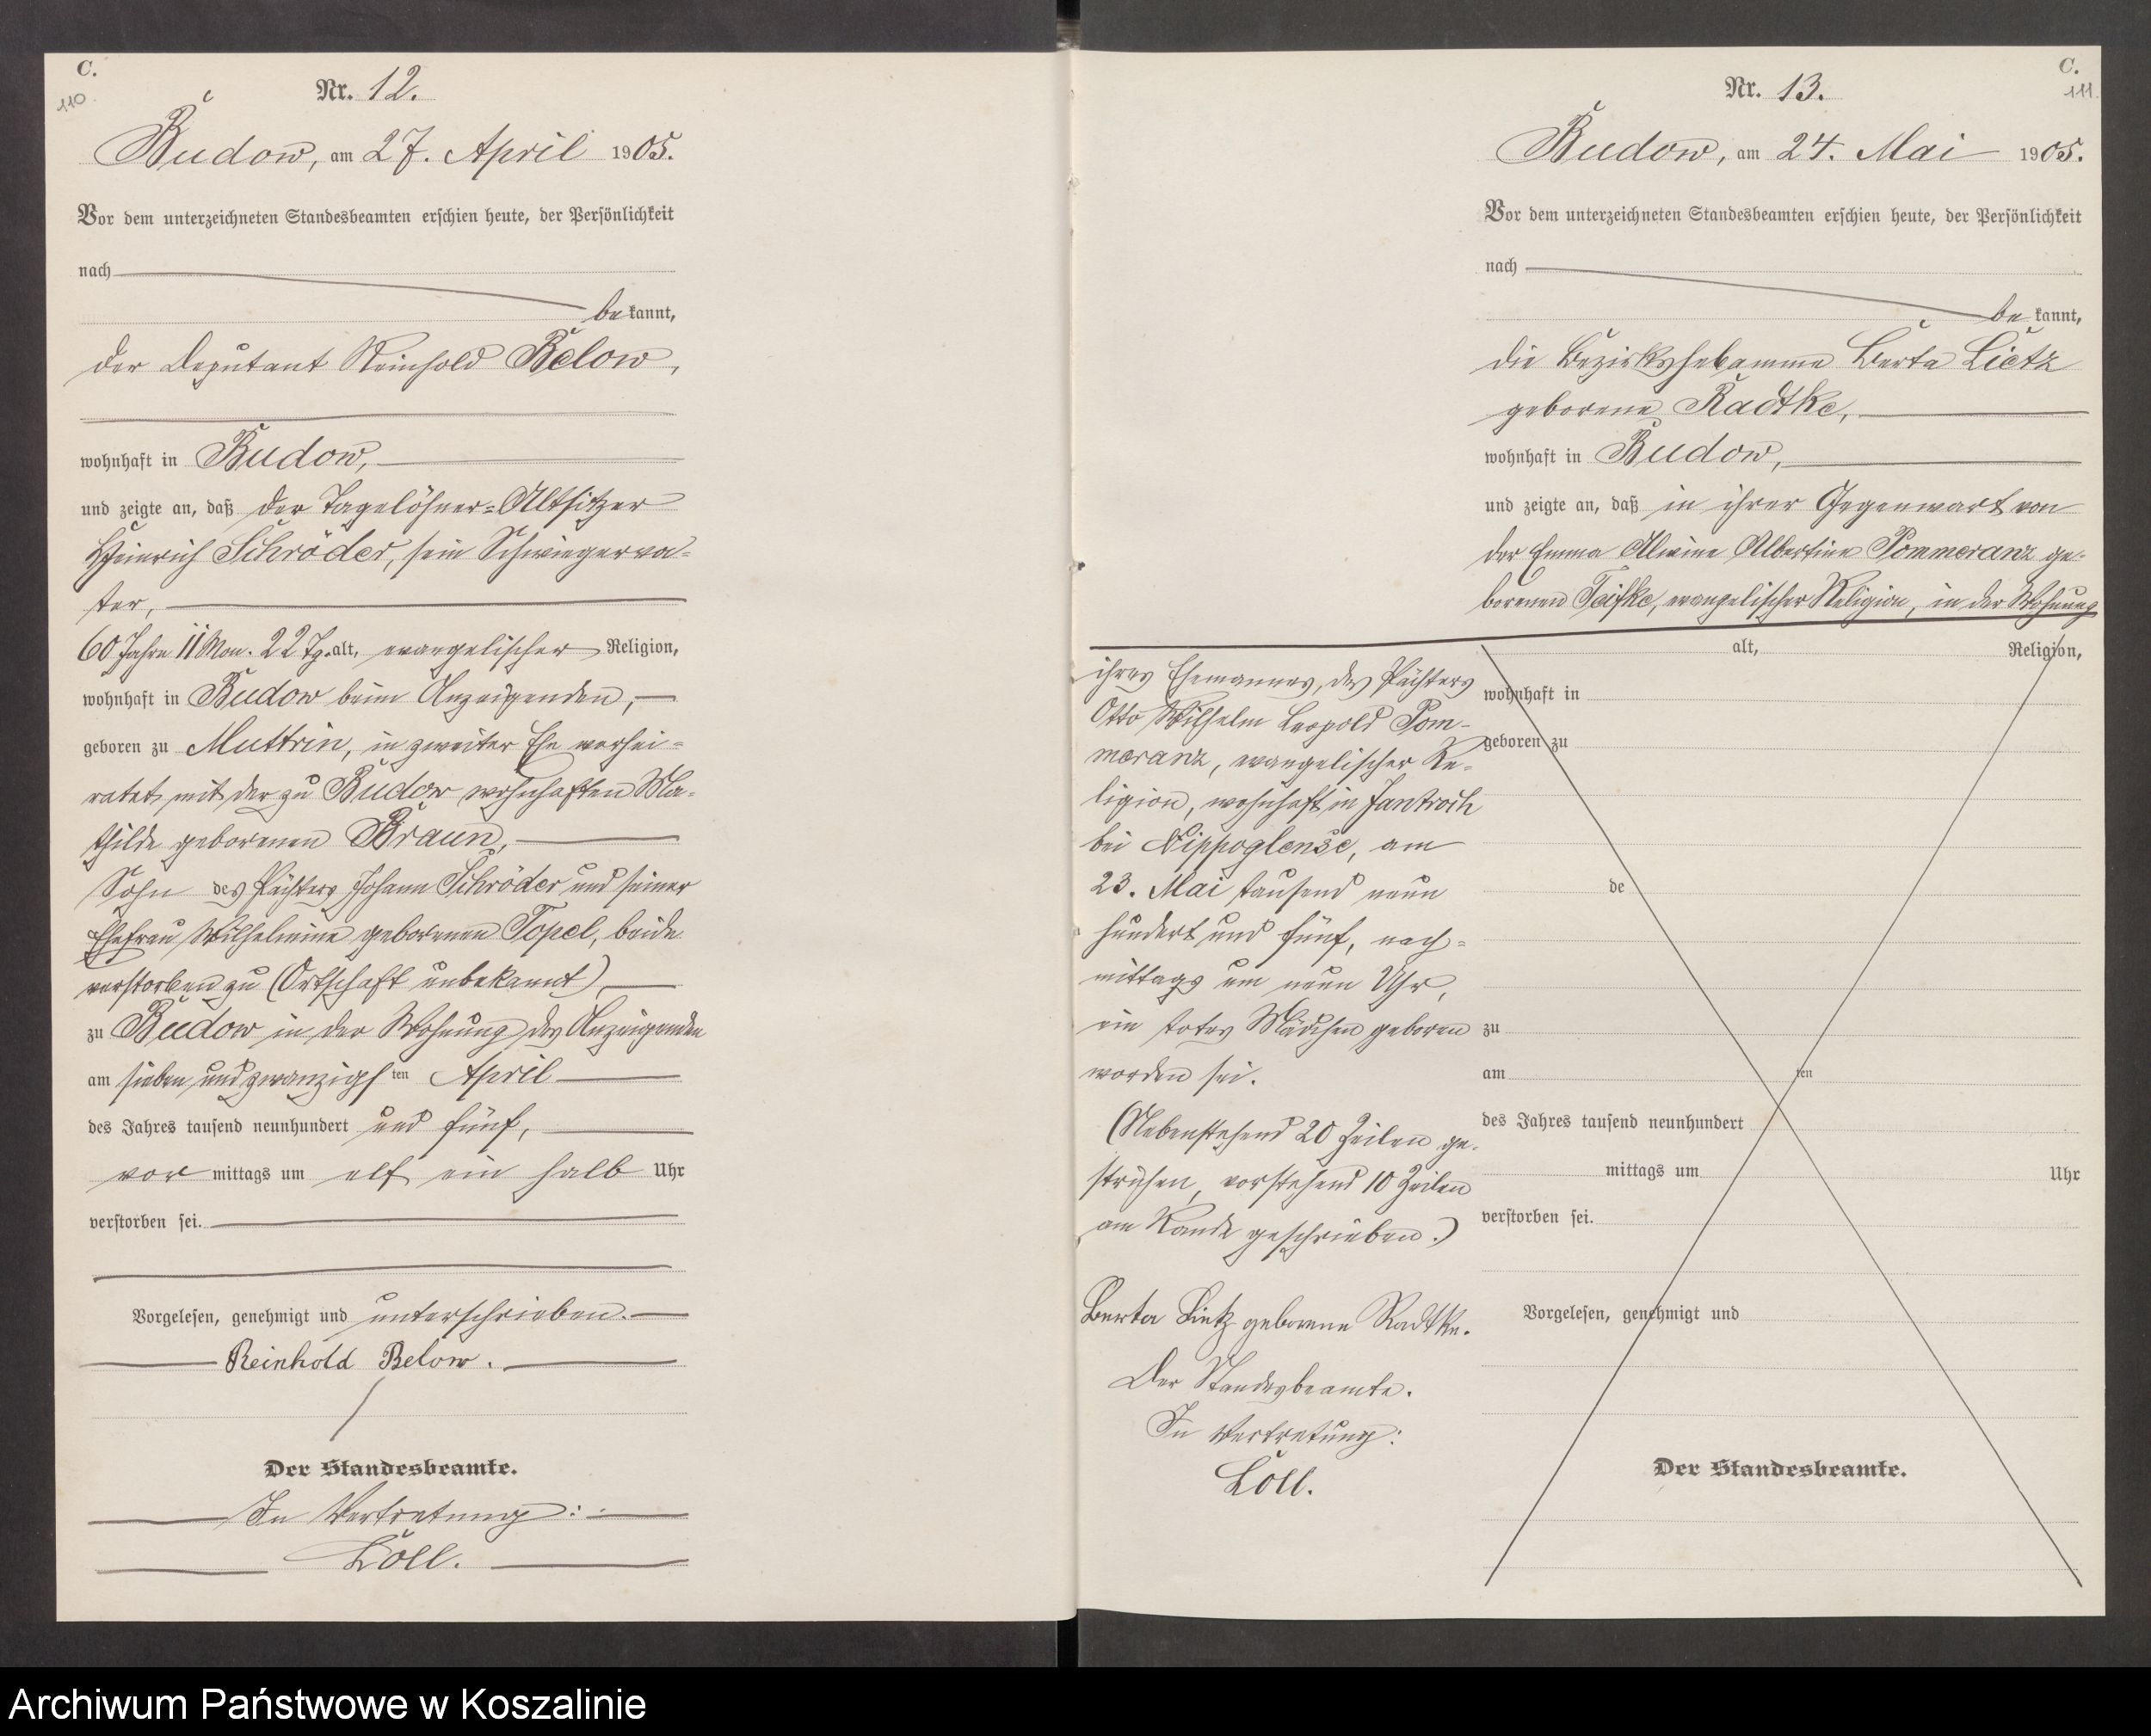 C.
110
Nr. 12.
Budow, am 27. April 1905.
Vor dem unterzeichneten Standesbeamten erschien heute, der Persönlichkeit
nach
be kannt,
der Deputant Reinhold Below,
wohnhaft in Budow,
und zeigte an, daß der Tagelöhner=Altsitzer
Heinrich Schröder, sein Schwiegerva=
ter,
60 Jahre 11 Mon. 22 Tg. alt, evangelischer Religion,
wohnhaft in Budow beim Anzeigenden,
geboren zu Muttrin, in zweiter Ehe verhei=
ratet mit der zu Budow wohnhaften Ma=
thilde geborenen Braun,
Sohn des Pächters Johann Schröder und seiner
Ehefrau Wilhelmine geborenen Topel, beide
verstorben zu (Ortschaft unbekannt),
zu Budow in der Wohnung des Anzeigenden
am sieben und zwanzigsten April
des Jahres tausend neunhundert und fünf,
vor mittags um elf ein halb Uhr
verstorben sei.
Vorgelesen, genehmigt und unterschrieben.
Reinhold Below.
Der Standesbeamte.
In Vertretung:
Loll.
C.
111.
Nr. 13.
Budow, am 24. Mai 1905.
Vor dem unterzeichneten Standesbeamten erschien heute, der Persönlichkeit
nach
be kannt,
die Bezirkshebamme Berta Lietz
geborene Radtke,
wohnhaft in Budow,
und zeigte an, daß in ihrer Gegenwart von
der Emma Alwine Albertine Pommeranz ge-
borenen Teifke, evangelischer Religion, in der Wohnung
ihres Ehemannes, des Pächters
Otto Wilhelm Leopold Pom-
meranz, evangelischer Re-
ligion, wohnhaft in Jantroch
bei Nippoglense, am
23. Mai tausend neun
hundert und fünf, nach=
mittags um neun Uhr,
ein totes Mädchen geboren
worden sei.
(Nebenstehend 20 Zeilen ge-
strichen, vorstehend 10 Zeilen
am Rande geschrieben.)
Berta Lietz geborene Radtke.
Der Standesbeamte.
In Vertretung:
Loll.
alt, Religion,
wohnhaft in
geboren zu
de
zu
am ten
des Jahres tausend neunhundert
mittags um Uhr
verstorben sei.
Vorgelesen, genehmigt und
Der Standesbeamte.
Archiwum Państwowe w Koszalinie